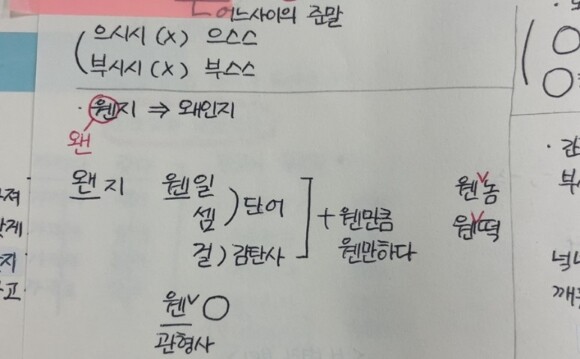 어느사이의 준말
으시시 (X) 으스스
부시시 (X) 부스스
· 웬지 ⇒ 왜인지
왠
왠지 웬일
셈 ) 단어
걸 ) 감탄사
+ 웬만큼
웬만하다
웬∨놈
웬∨떡
웬∨○
관형사